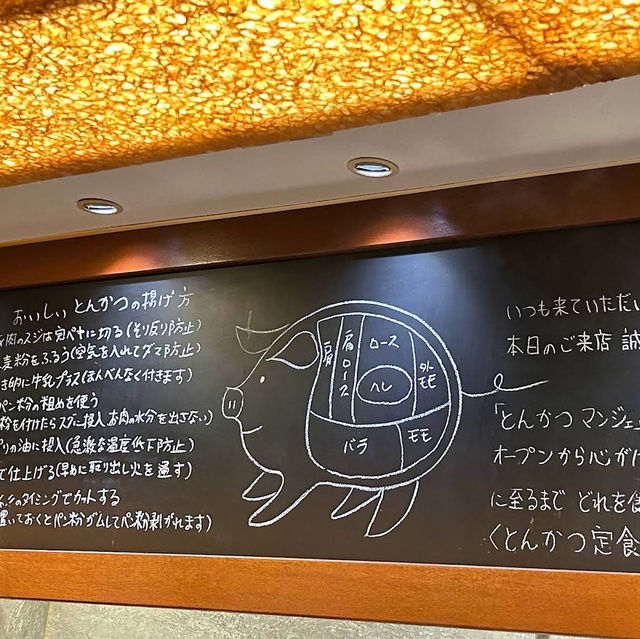 おいしいとんかつの揚げ方
肉のスジは完ペキに切る(そり反り防止)
麦粉をふるう(空気を入れてダマ防止)
き卵に牛乳プラス(まんべんなく付きます)
パン粉の粗めを使う
粉を付けたらスグに投入 お肉の水分を出さない)
プリの油に投入(急激な温度低下防止)
で仕上げる(早めに取り出し火を通す)
のタイミングでカットする
置いておくとパン粉がムレてパン粉剥がれます)
肩
肩ロース
ロース
ヒレ
外モモ
バラ
モモ
いつも来ていただい
本日のご来店 誠
「とんかつ マンジェ」
オープンから心がけ
に至るまで どれを
〈とんかつ定食